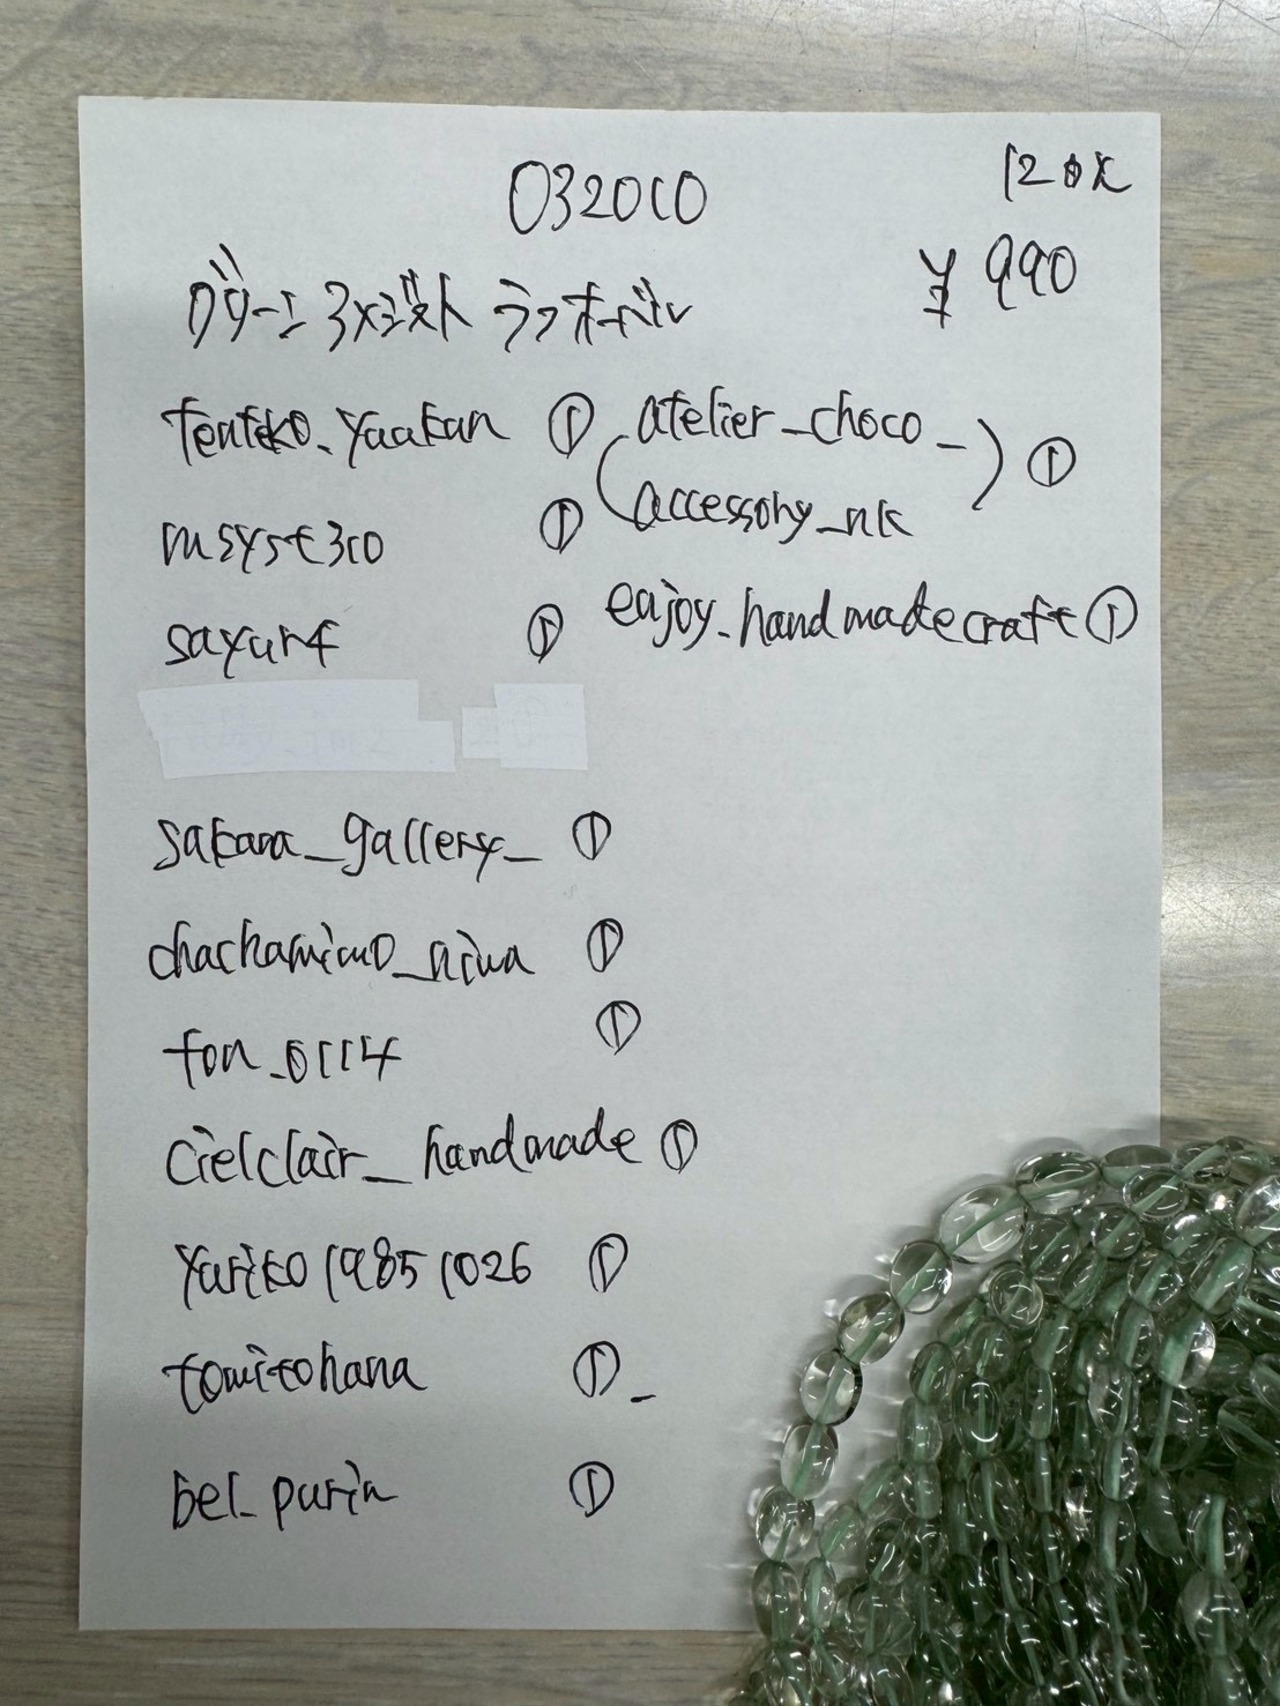 032010
120本
¥990
グリーンアメジスト ラフオーバル
tenteko_yaakan ①
msyst310 ①
sayur4 ①
sakana_gallery_ ①
chachamimo_niwa ①
ton_0114 ①
cielclair_handmade ①
yuriko19851026 ①
tomitohana ①_
bel_purin ①
(atelier_choco_
accessory_nk) ①
enjoy_handmadecraft ①